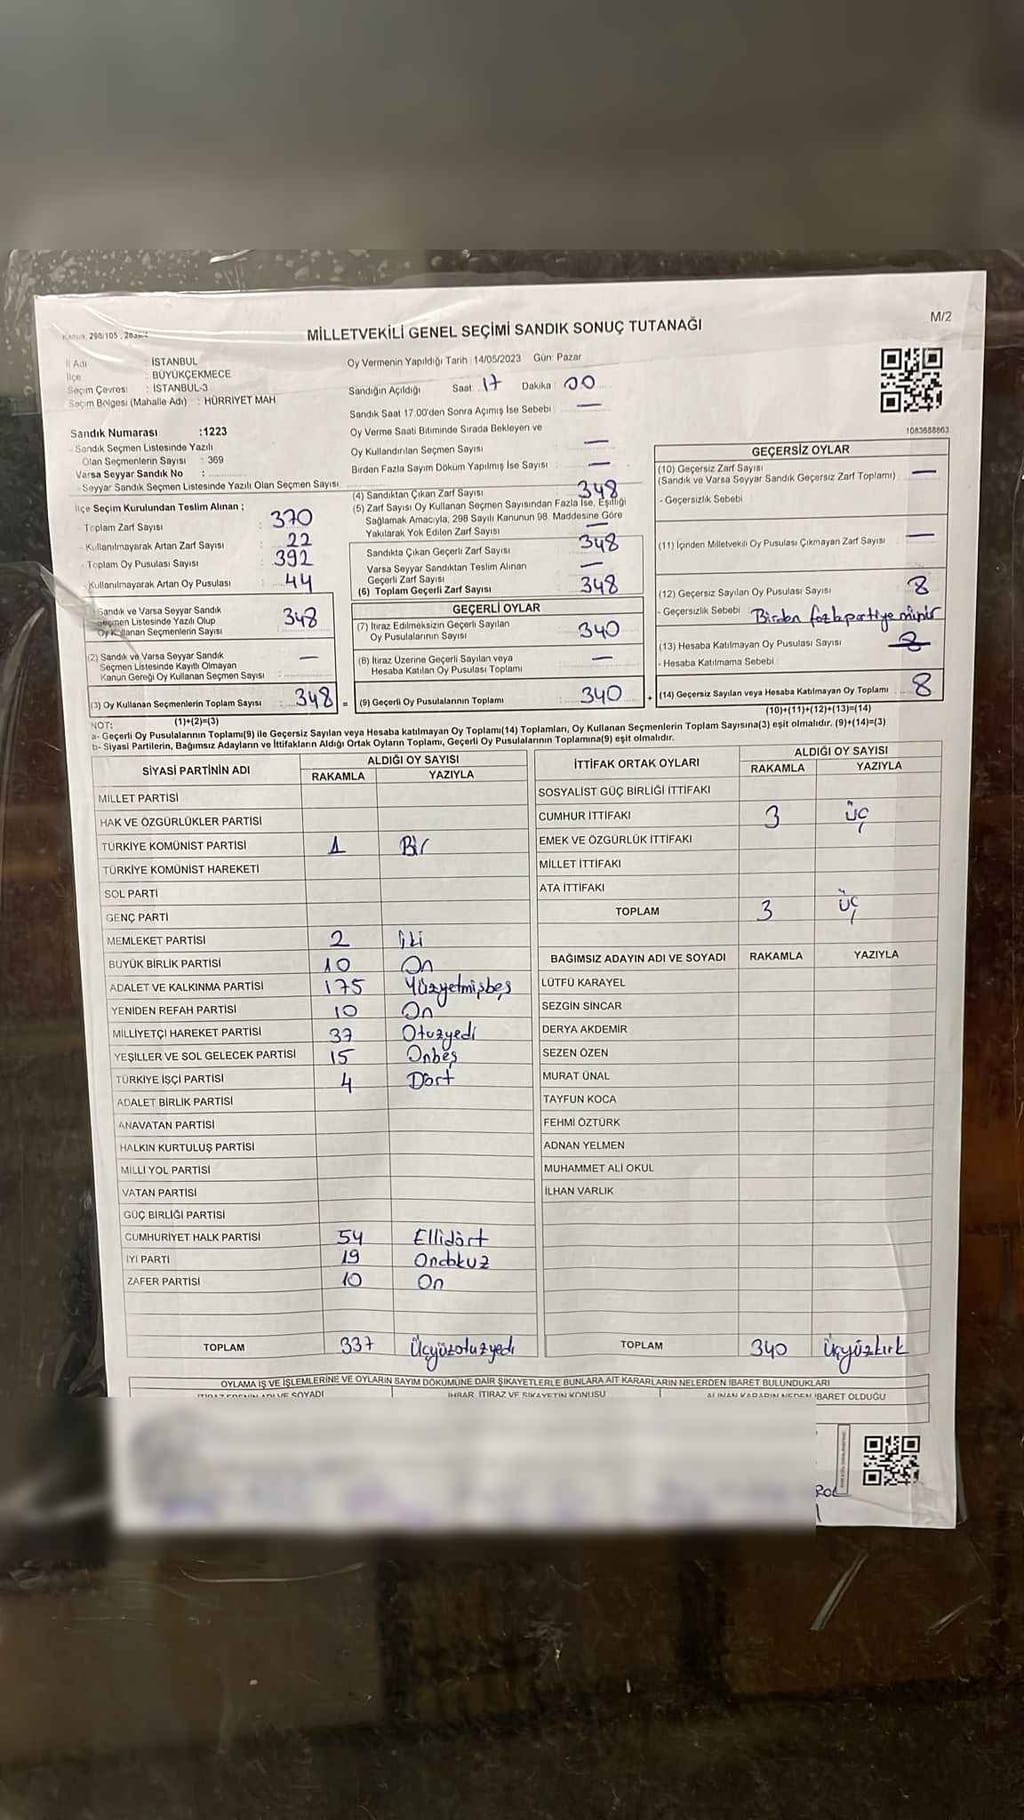 MİLLETVEKİLİ GENEL SEÇİMİ SANDIK SONUÇ TUTANAĞI
M/2
İl Adı : İSTANBUL
İlçe : BÜYÜKÇEKMECE
Seçim Çevresi : İSTANBUL-3
Seçim Bölgesi (Mahalle Adı) : HÜRRİYET MAH
Sandık Numarası :1223
- Sandık Seçmen Listesinde Yazılı
Olan Seçmenlerin Sayısı : 369
Varsa Seyyar Sandık No :
- Seyyar Sandık Seçmen Listesinde Yazılı Olan Seçmen Sayısı
Oy Vermenin Yapıldığı Tarih : 14/05/2023 Gün: Pazar
Sandığın Açıldığı Saat: 17 Dakika : 00
Sandık Saat 17.00'den Sonra Açımış İse Sebebi : —
Oy Verme Saati Bitiminde Sırada Bekleyen ve
Oy Kullandırılan Seçmen Sayısı : —
Birden Fazla Sayım Döküm Yapılmış İse Sayısı : —
1083688663
İlçe Seçim Kurulundan Teslim Alınan ;
- Toplam Zarf Sayısı : 370
- Kullanılmayarak Artan Zarf Sayısı : 22
- Toplam Oy Pusulası Sayısı : 392
- Kullanılmayarak Artan Oy Pusulası : 44
(1) Sandık ve Varsa Seyyar Sandık
Seçmen Listesinde Yazılı Olup
Oy Kullanan Seçmenlerin Sayısı : 348
(2) Sandık ve Varsa Seyyar Sandık
Seçmen Listesinde Kayıtlı Olmayan
Kanun Gereği Oy Kullanan Seçmen Sayısı : —
(3) Oy Kullanan Seçmenlerin Toplam Sayısı : 348 =
(1)+(2)=(3)
(4) Sandıktan Çıkan Zarf Sayısı : 348
(5) Zarf Sayısı Oy Kullanan Seçmen Sayısından Fazla İse, Eşitliği
Sağlamak Amacıyla, 298 Sayılı Kanunun 98. Maddesine Göre
Yakılarak Yok Edilen Zarf Sayısı : —
Sandıkta Çıkan Geçerli Zarf Sayısı : 348
Varsa Seyyar Sandıktan Teslim Alınan
Geçerli Zarf Sayısı : —
(6) Toplam Geçerli Zarf Sayısı : 348
GEÇERLİ OYLAR
(7) İtiraz Edilmeksizin Geçerli Sayılan
Oy Pusulalarının Sayısı : 340
(8) İtiraz Üzerine Geçerli Sayılan veya
Hesaba Katılan Oy Pusulası Toplamı : —
(9) Geçerli Oy Pusulalarının Toplamı : 340 +
GEÇERSİZ OYLAR
(10) Geçersiz Zarf Sayısı
(Sandık ve Varsa Seyyar Sandık Geçersiz Zarf Toplamı) : —
- Geçersizlik Sebebi
(11) İçinden Milletvekili Oy Pusulası Çıkmayan Zarf Sayısı : —
(12) Geçersiz Sayılan Oy Pusulası Sayısı : 8
- Geçersizlik Sebebi : Birden fazla partiye mühür
(13) Hesaba Katılmayan Oy Pusulası Sayısı
- Hesaba Katılmama Sebebi
(14) Geçersiz Sayılan veya Hesaba Katılmayan Oy Toplamı : 8
(10)+(11)+(12)+(13)=(14)
NOT:
a- Geçerli Oy Pusulalarının Toplamı(9) ile Geçersiz Sayılan veya Hesaba katılmayan Oy Toplamı(14) Toplamları, Oy Kullanan Seçmenlerin Toplam Sayısına(3) eşit olmalıdır. (9)+(14)=(3)
b- Siyasi Partilerin, Bağımsız Adayların ve İttifakların Aldığı Ortak Oyların Toplamı, Geçerli Oy Pusulalarının Toplamına(9) eşit olmalıdır.
SİYASİ PARTİNİN ADI ALDIĞI OY SAYISI
RAKAMLA YAZIYLA
MİLLET PARTİSİ
HAK VE ÖZGÜRLÜKLER PARTİSİ
TÜRKİYE KOMÜNİST PARTİSİ 1 Bir
TÜRKİYE KOMÜNİST HAREKETİ
SOL PARTİ
GENÇ PARTİ
MEMLEKET PARTİSİ 2 İki
BÜYÜK BİRLİK PARTİSİ 10 On
ADALET VE KALKINMA PARTİSİ 175 Yüzyetmişbeş
YENİDEN REFAH PARTİSİ 10 On
MİLLİYETÇİ HAREKET PARTİSİ 37 Otuzyedi
YEŞİLLER VE SOL GELECEK PARTİSİ 15 Onbeş
TÜRKİYE İŞÇİ PARTİSİ 4 Dört
ADALET BİRLİK PARTİSİ
ANAVATAN PARTİSİ
HALKIN KURTULUŞ PARTİSİ
MİLLİ YOL PARTİSİ
VATAN PARTİSİ
GÜÇ BİRLİĞİ PARTİSİ
CUMHURİYET HALK PARTİSİ 54 Ellidört
İYİ PARTİ 19 Ondokuz
ZAFER PARTİSİ 10 On
TOPLAM 337 Üçyüzotuzyedi
İTTİFAK ORTAK OYLARI ALDIĞI OY SAYISI
RAKAMLA YAZIYLA
SOSYALİST GÜÇ BİRLİĞİ İTTİFAKI
CUMHUR İTTİFAKI 3 üç
EMEK VE ÖZGÜRLÜK İTTİFAKI
MİLLET İTTİFAKI
ATA İTTİFAKI
TOPLAM 3 üç
BAĞIMSIZ ADAYIN ADI VE SOYADI RAKAMLA YAZIYLA
LÜTFÜ KARAYEL
SEZGİN SİNCAR
DERYA AKDEMİR
SEZEN ÖZEN
MURAT ÜNAL
TAYFUN KOCA
FEHMİ ÖZTÜRK
ADNAN YELMEN
MUHAMMET ALİ OKUL
İLHAN VARLIK
TOPLAM 340 Üçyüzkırk
OYLAMA İŞ VE İŞLEMLERİNE VE OYLARIN SAYIM DÖKÜMÜNE DAİR ŞİKAYETLERLE BUNLARA AİT KARARLARIN NELERDEN İBARET BULUNDUKLARI
İTİRAZ EDENİN ADI VE SOYADI İHBAR, İTİRAZ VE ŞİKAYETİN KONUSU ALINAN KARARIN NEDEN İBARET OLDUĞU